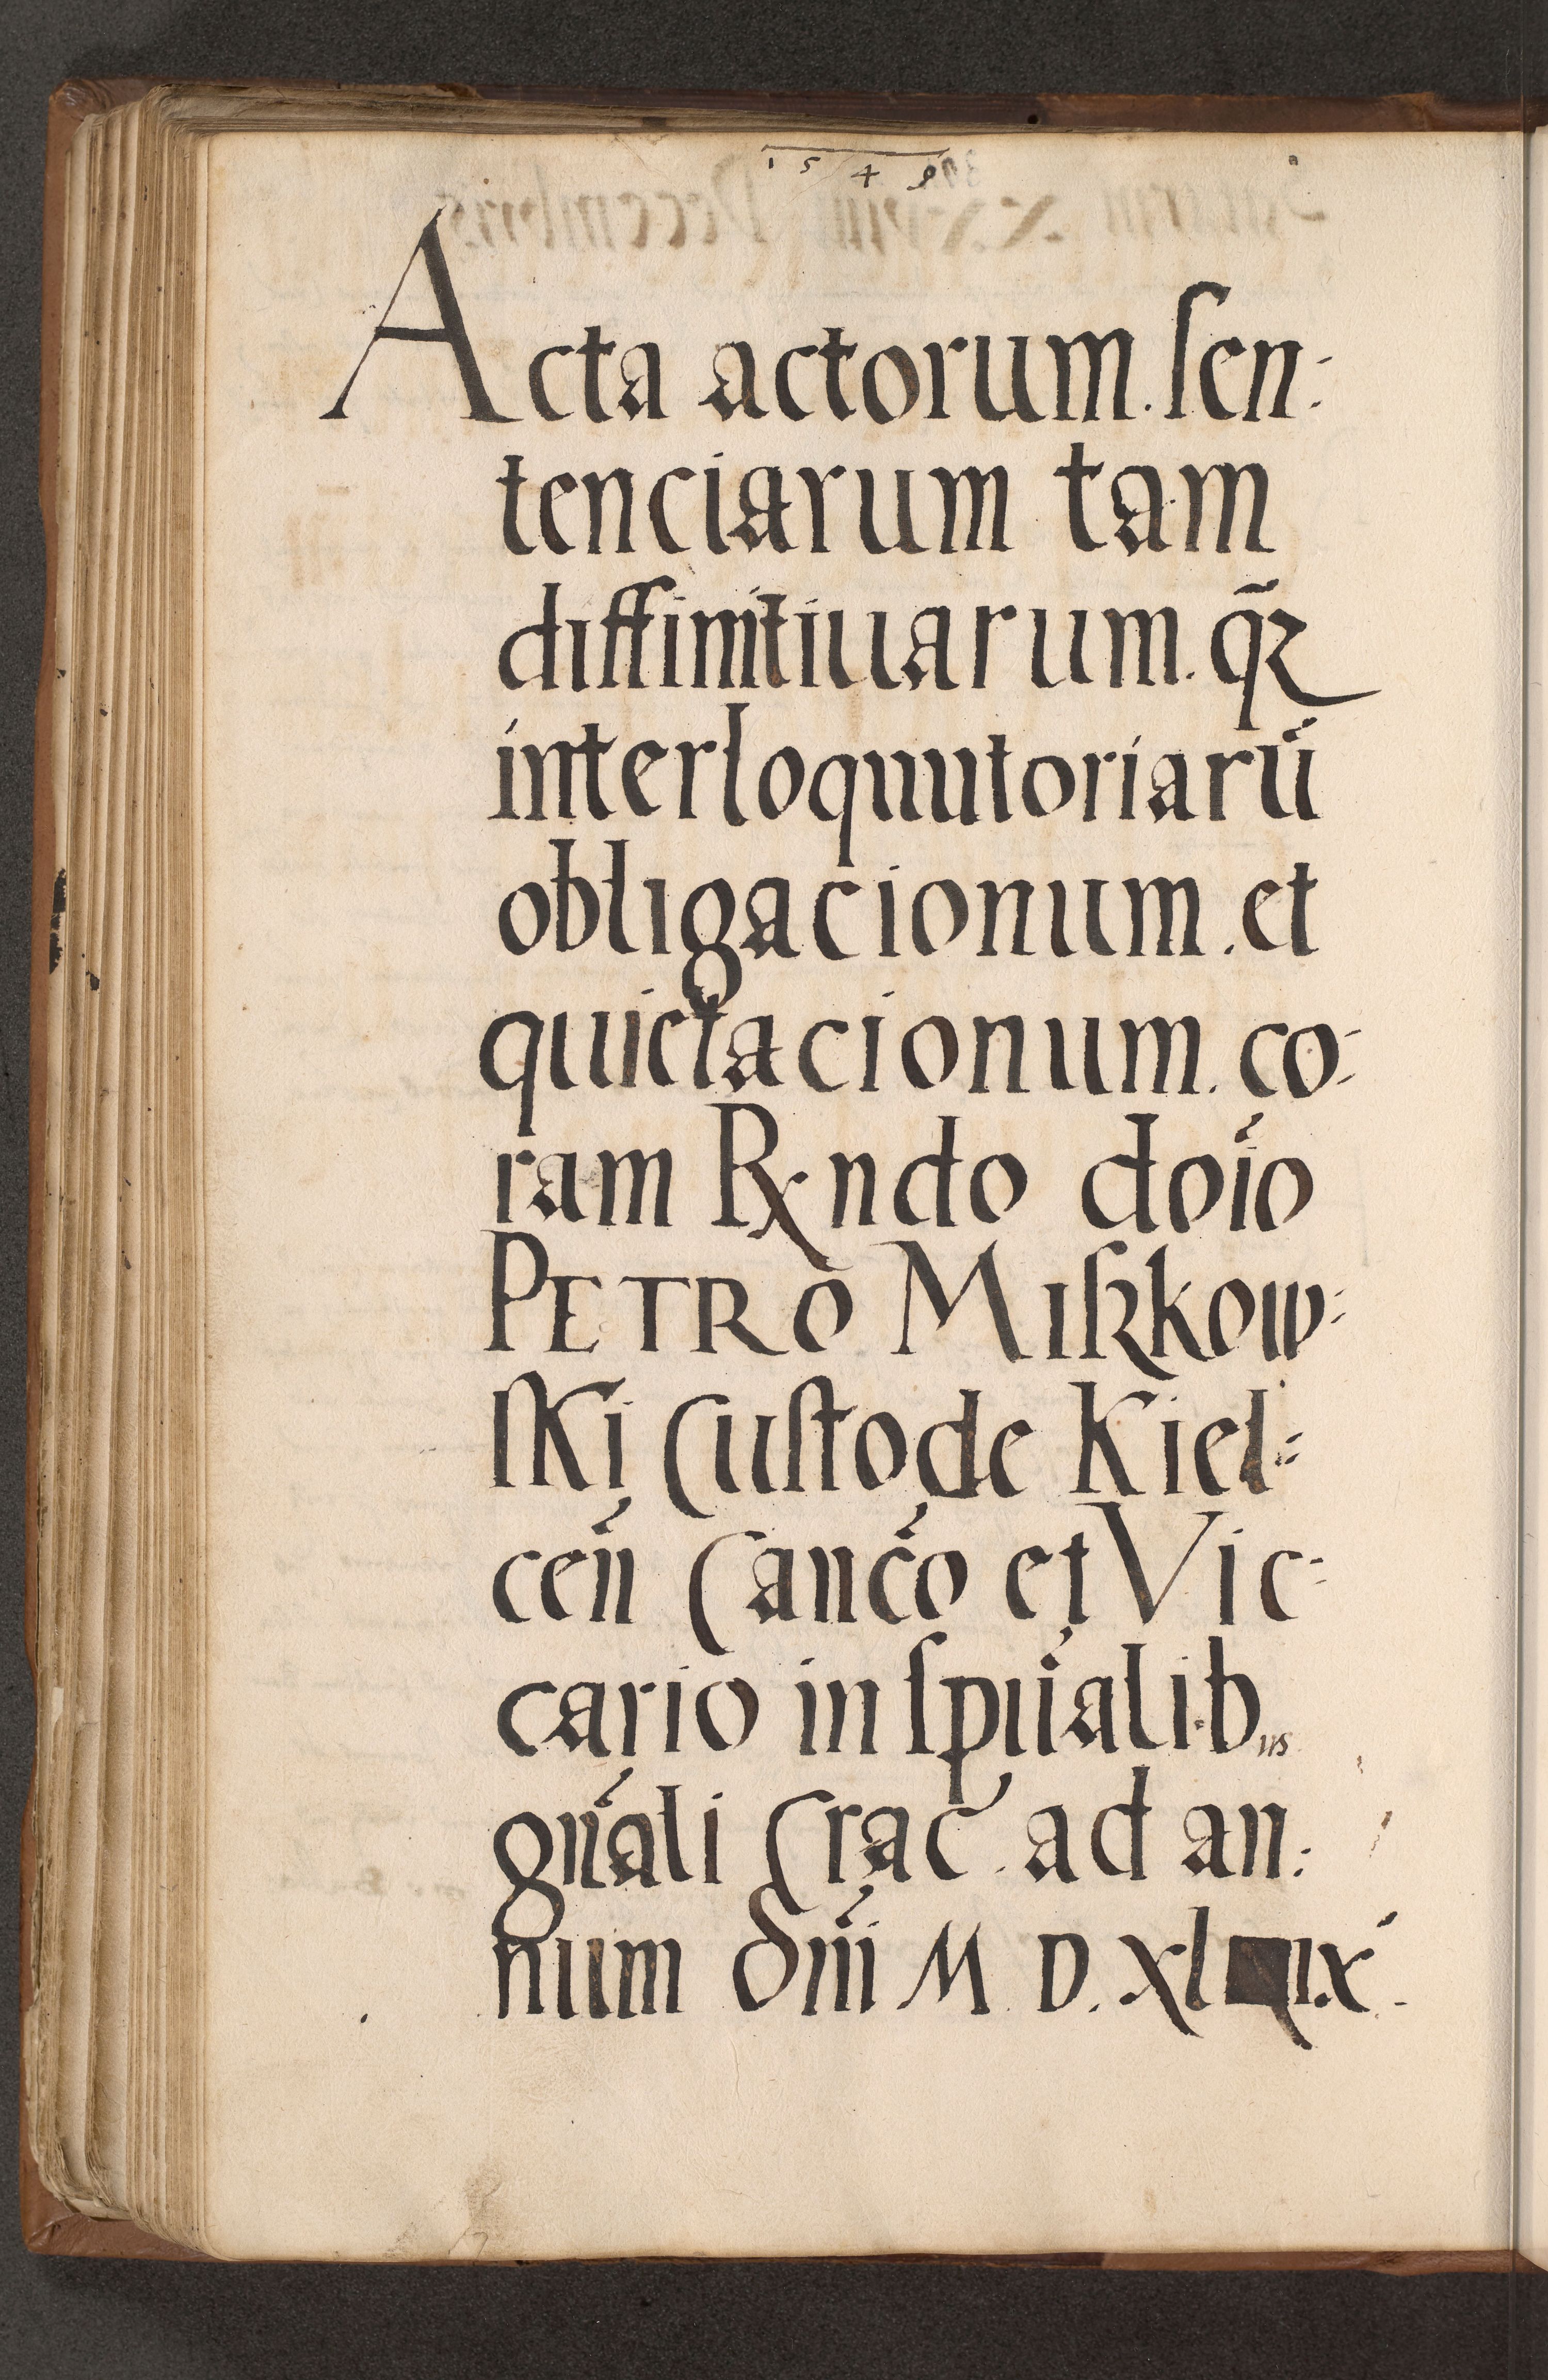 1549
Acta actorum. sen:
tenciarum tam
diffinitiuarum. qꝫ̃
interloquutoriarū
obligacionum. et
quictacionum. co:
ram Rndo doio
PETRO Miskow:
ski Custode Kiel:
ceń Canćo et Vic:
cario in spūalibus
gnāli Crac. ad an:
num dnī M D. XLIX.